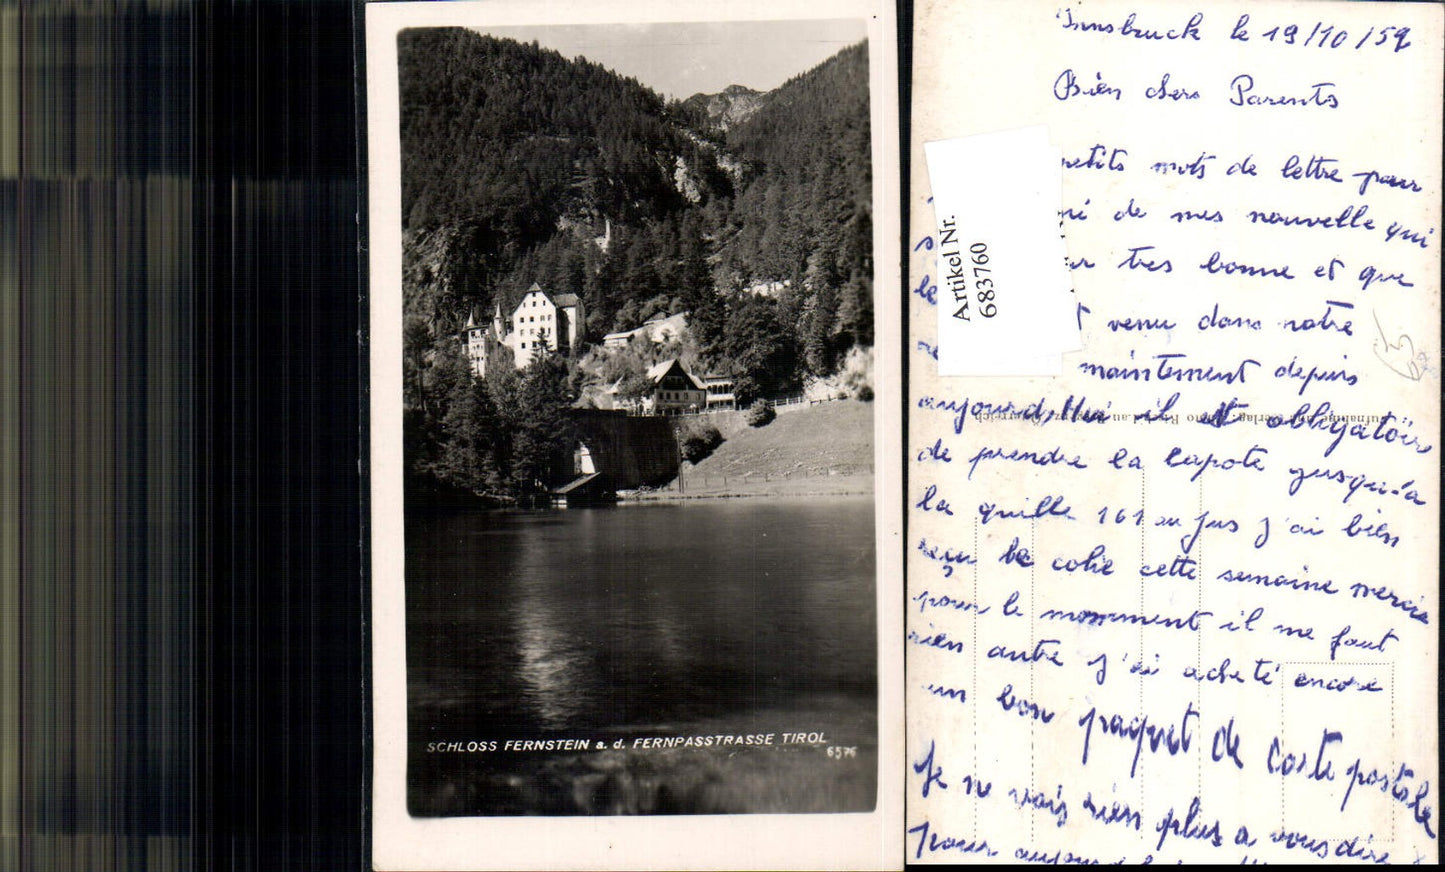 SCHLOSS FERNSTEIN a. d. FERNPASSTRASSE TIROL
6576
Artikel Nr.
683760
Innsbruck le 19/10/59
Bien chers Parents
petits mots de lettre pour
de mes nouvelle qui
tres bonne et que
venu dans notre
maintement depuis
aujourd'hui il est obligatoire
de prendre la capote jusqu'a
la quille 161 au jus j'ai bien
reçu le colie cette semaine mercie
pour le momment il me faut
rien autre j'ai acheté encore
un bon paquet de carte postale
Je ne vais rien plus a vous dire
pour